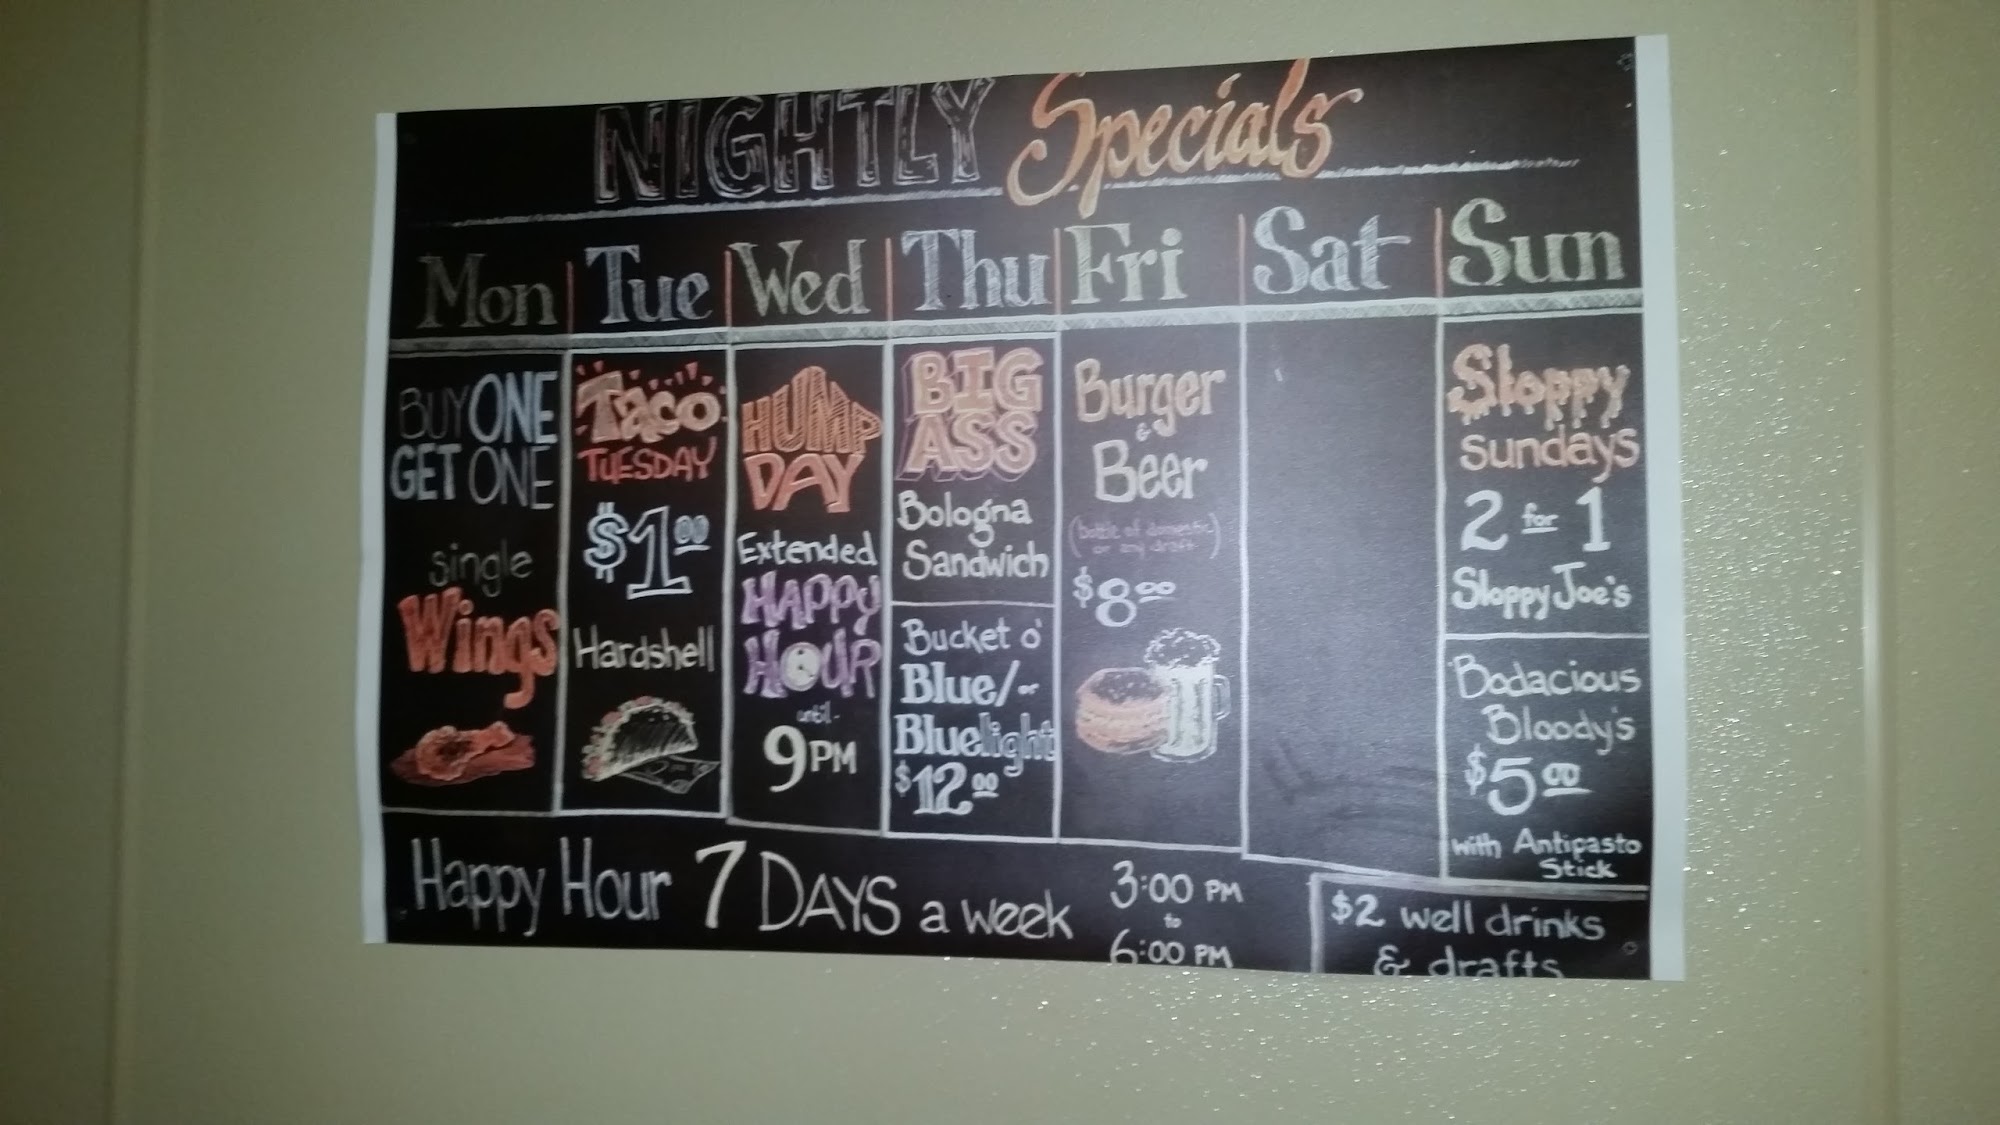 NIGHTLY Specials
Mon Tue Wed Thu Fri Sat Sun
BUY ONE
GET ONE
single
Wings
Taco
TUESDAY
$1.00
Hardshell
HUMP
DAY
Extended
HAPPY
HOUR
until
9PM
BIG
ASS
Bologna
Sandwich
Bucket o'
Blue/or
Bluelight
$12.00
Burger
&
Beer
(bottle of domestic
or any draft)
$8.00
Sloppy
Sundays
2 for 1
Sloppy Joe's
Bodacious
Bloody's
$5.00
with Antipasto
Stick
Happy Hour 7 DAYS a week
3:00 PM
to
6:00 PM
$2 well drinks
& drafts